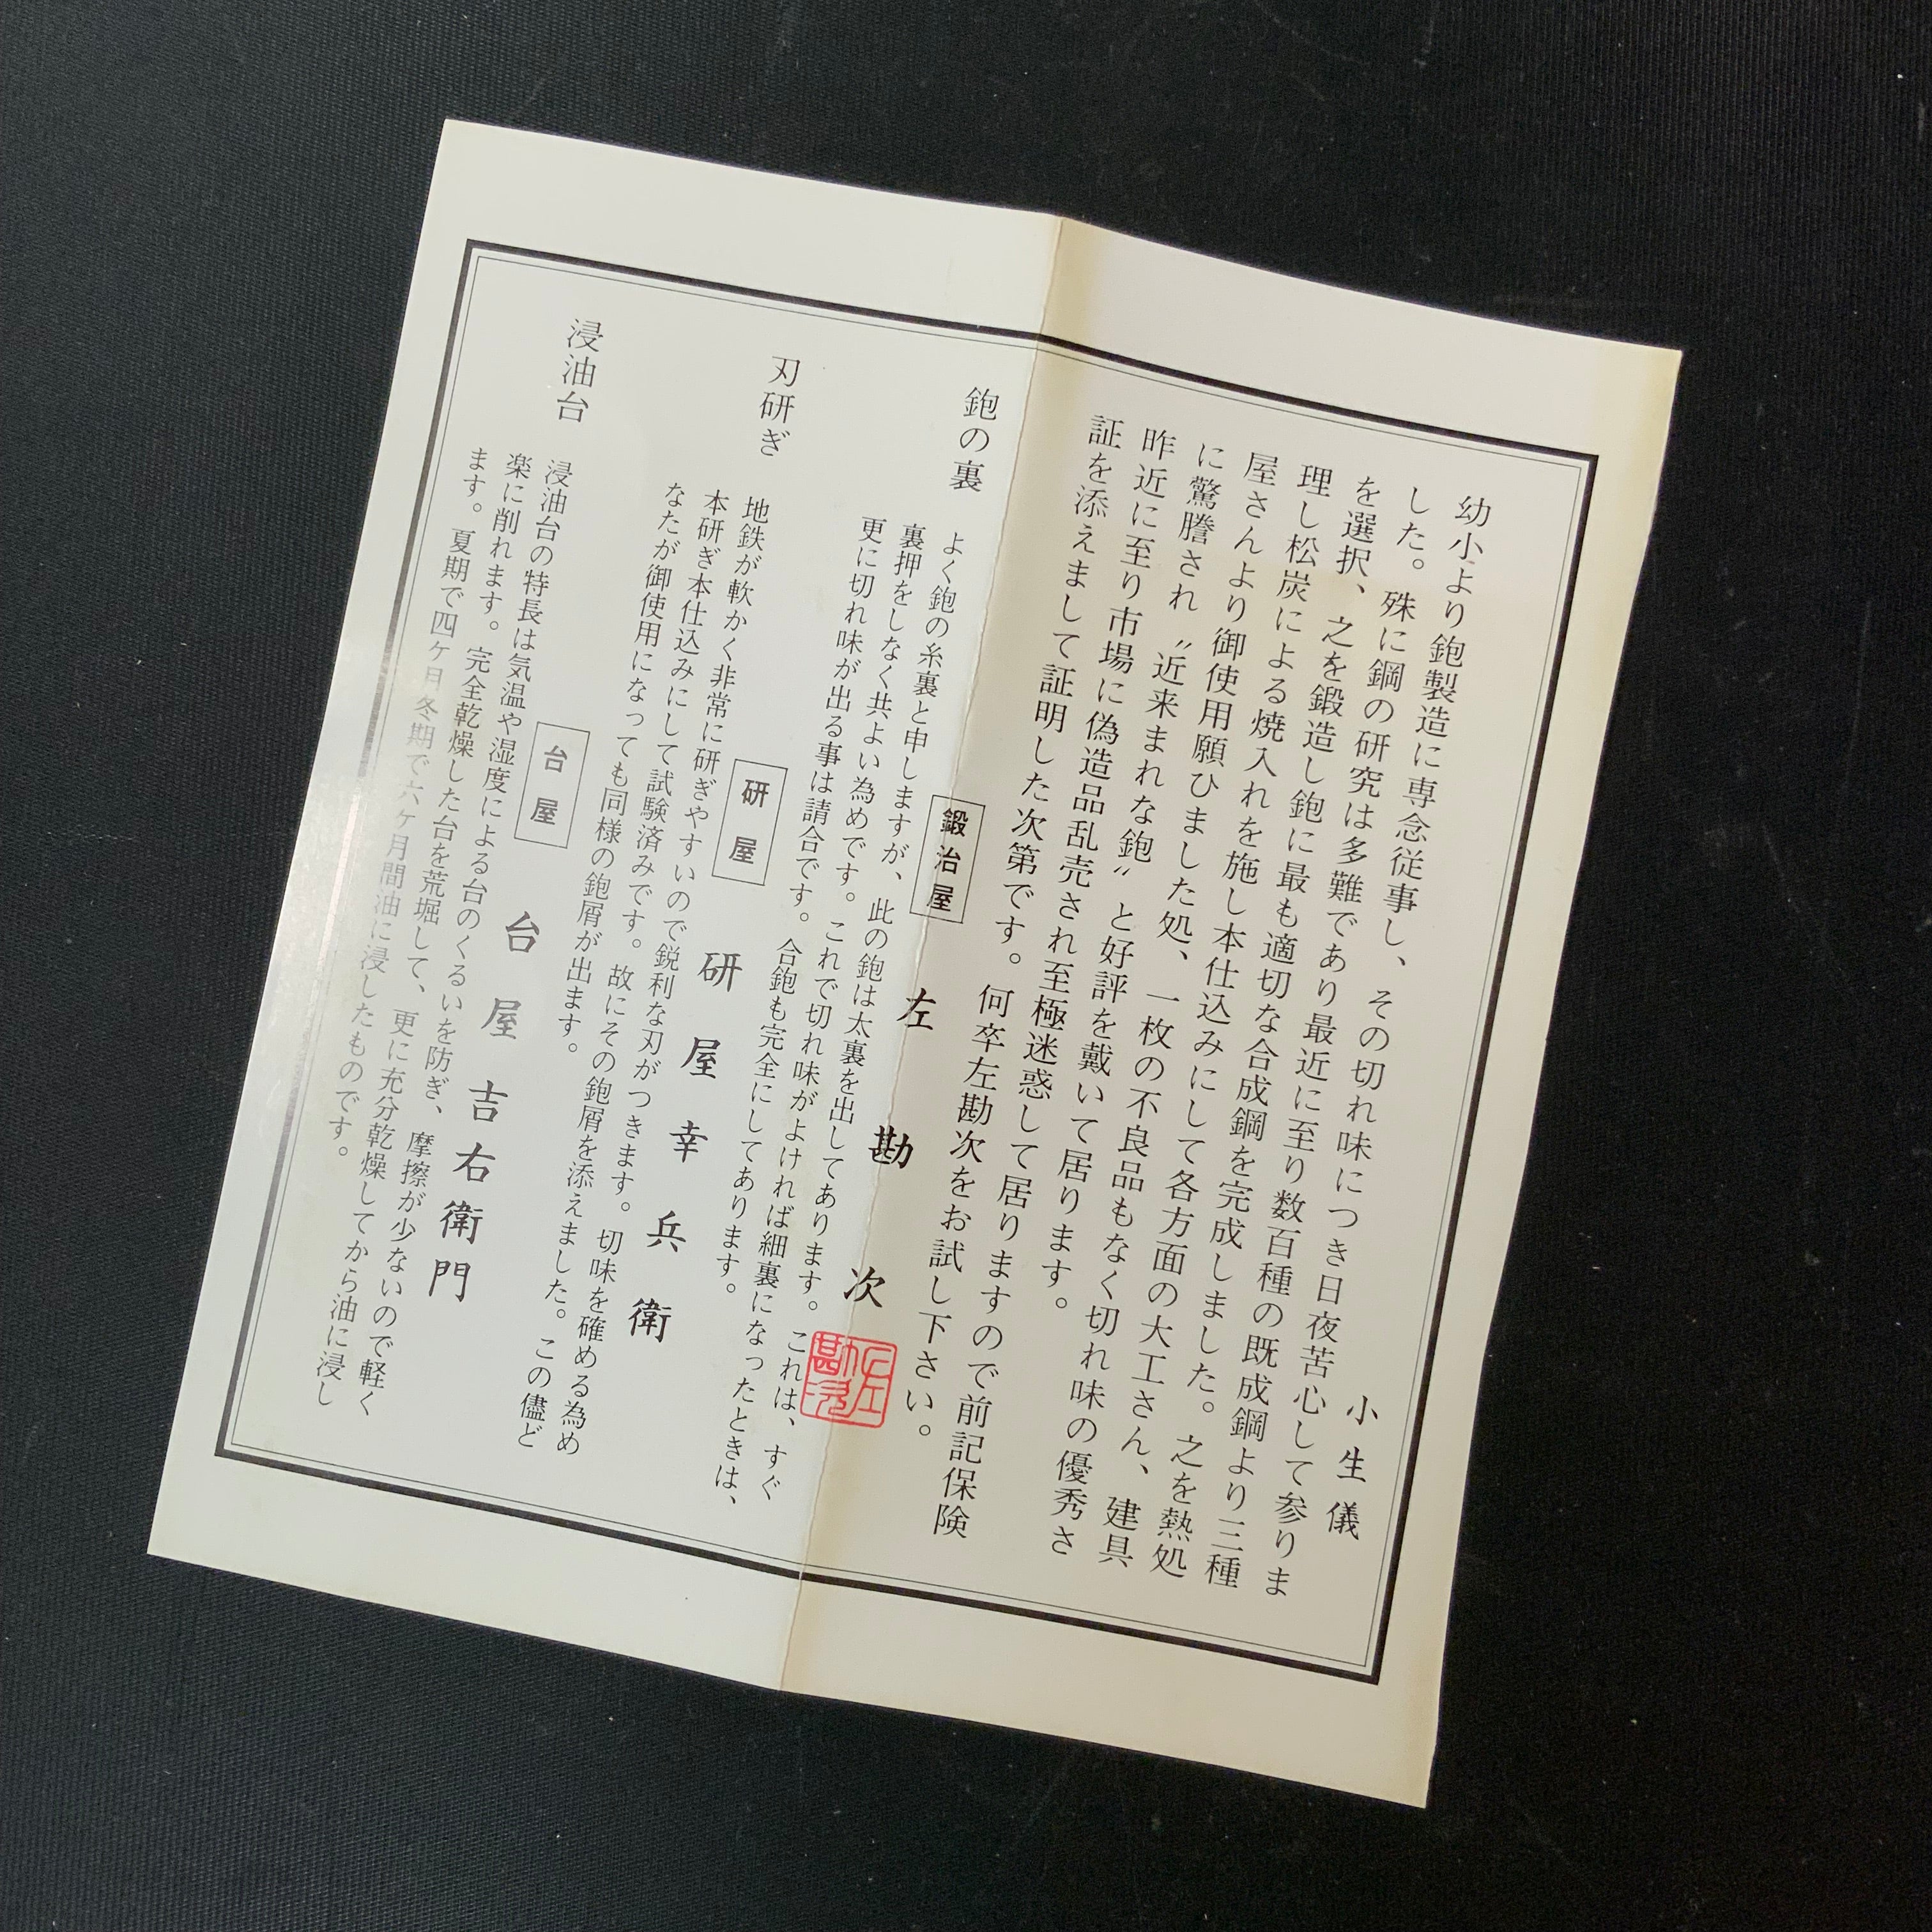 小生儀
幼小より鉋製造に専念従事し、その切れ味につき日夜苦心して参りま
した。殊に鋼の研究は多難であり最近に至り数百種の既成鋼より三種
を選択、之を鍛造し鉋に最も適切な合成鋼を完成しました。之を熱処
理し松炭による焼入れを施し本仕込みにして各方面の大工さん、建具
屋さんより御使用願ひました処、一枚の不良品もなく切れ味の優秀さ
に驚謄され〝近来まれな鉋〟と好評を戴いて居ります。
昨近に至り市場に偽造品乱売され至極迷惑して居りますので前記保険
証を添えまして証明した次第です。何卒左勘次をお試し下さい。
鍛治屋 左勘次
佐勘次
鉋の裏
よく鉋の糸裏と申しますが、此の鉋は太裏を出してあります。これは、すぐ
裏押をしなく共よい為めです。これで切れ味がよければ細裏になったときは、
更に切れ味が出る事は請合です。合鉋も完全にしてあります。
研屋 研屋幸兵衛
刃研ぎ
地鉄が軟かく非常に研ぎやすいので鋭利な刃がつきます。切味を確める為め
本研ぎ本仕込みにして試験済みです。故にその鉋屑を添えました。この儘ど
なたが御使用になっても同様の鉋屑が出ます。
台屋 台屋吉右衛門
浸油台
浸油台の特長は気温や湿度による台のくるいを防ぎ、摩擦が少ないので軽く
楽に削れます。完全乾燥した台を荒堀して、更に充分乾燥してから油に浸し
ます。夏期で四ケ月冬期で六ケ月間油に浸したものです。